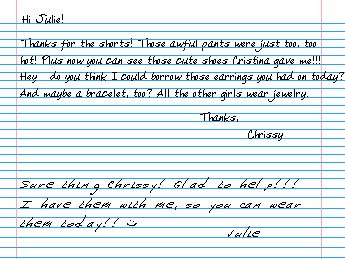 Hi Julie!
Thanks for the shorts! Those awful pants were just too, too
hot! Plus now you can see those cute shoes Cristina gave me!!!
Hey do you think I could borrow those earrings you had on today?
And maybe a bracelet, too? All the other girls wear jewelry.
Thanks,
Chrissy
Sure thing Chrissy! Glad to help!!!
I have them with me, so you can wear
them today!! :)
Julie